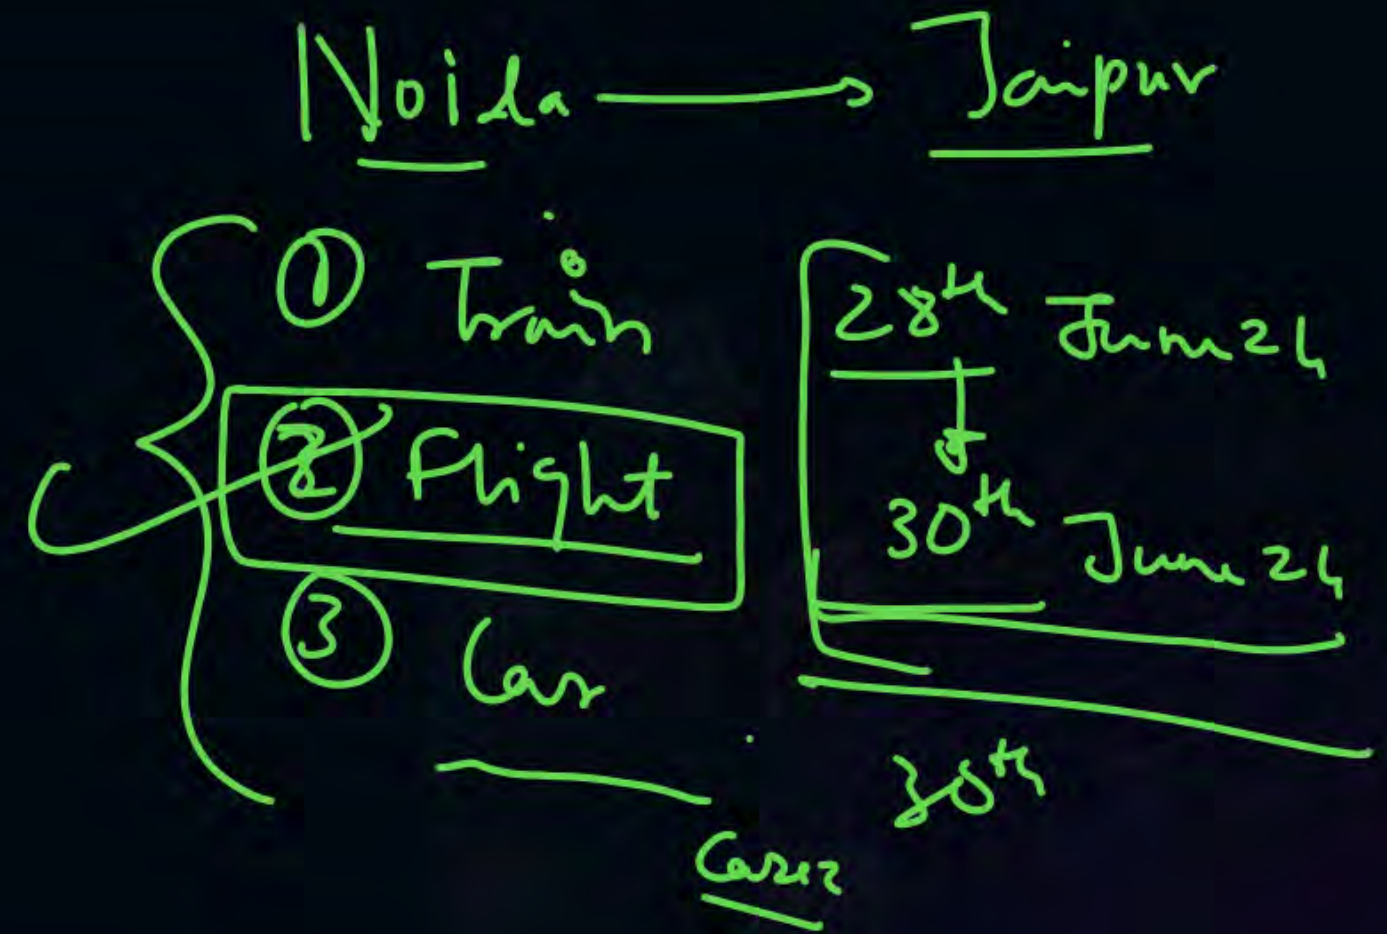 Noida → Jaipur
① Train
② Flight
③ Car
28th June 24
↓
30th June 24
30th